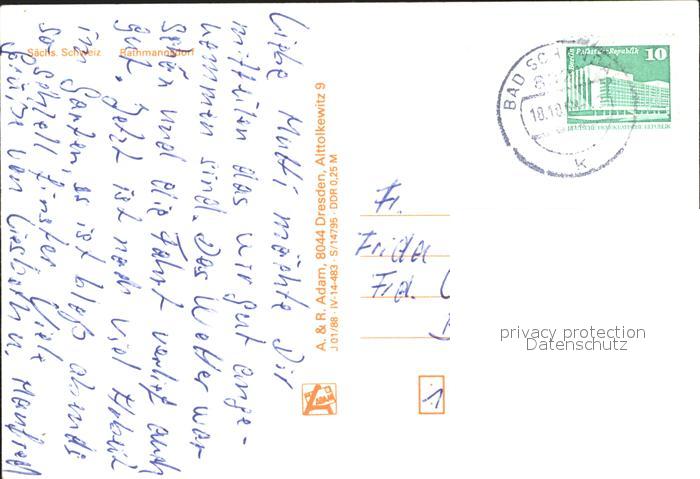 Sächs. Schweiz Rathmannsdorf
Liebe Mutti möchte Dir
mitteilen das wir gut ange-
kommen sind. Das Wetter war
schön und die Fahrt verlief auch
gut. Jetzt ist noch viel Arbeit
im Garten, es ist bloß abends
so schnell finster. Viele
Grüße von Lisbeth u. Manfred
A. & R. Adam, 8044 Dresden, Alttolkewitz 9
J 01/88 · IV-14-483 · S/14795 · DDR 0,25 M
ADAM
BAD SCH
18.10
k
Berlin Palast der Republik 10
DEUTSCHE DEMOKRATISCHE REPUBLIK
Fr.
Frida
1
privacy protection
Datenschutz